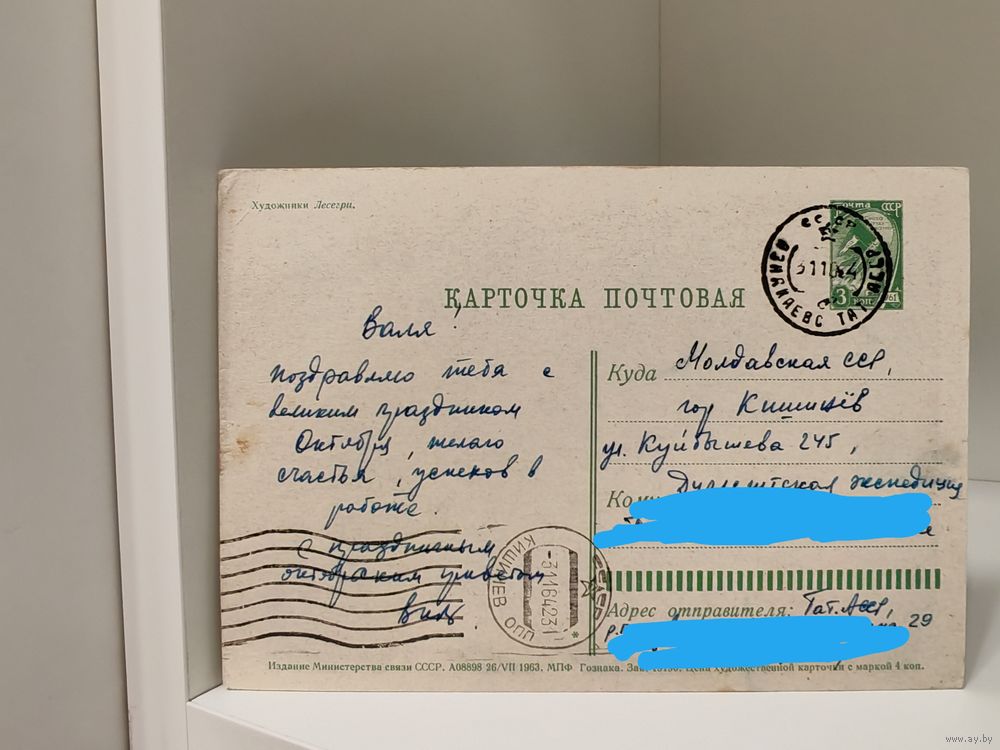 Художники Лесегри.
почта СССР
3 коп. 1961
СССР
31 10 64
КАРТОЧКА ПОЧТОВАЯ
Валя!
поздравляю тебя с
великим праздником
Октября, желаю
счастья, успехов в
работе.
С праздничным
октябрьским приветом
Куда Молдавская ССР,
гор Кишинёв
ул. Куйбышева 245,
экспедиция
СССР
-31164231
КИШИНЕВ ОПП
Адрес отправителя: Тат.АССР,
29
Издание Министерства связи СССР. А08898 26/VII 1963. МПФ Гознака. Цена художественной карточки с маркой 4 коп.
www.ay.by